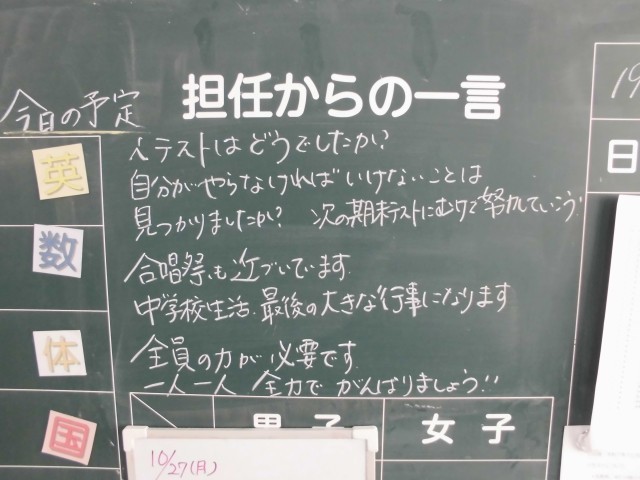 担任からの一言
今日の予定
英
数
体
国
人テストはどうでしたか?
自分がやらなければいけないことは
見つかりましたか? 次の期末テストにむけて努力していこう!
合唱祭も近づいています
中学校生活.最後の大きな行事になります
全員の力が必要です
一人一人 全力で がんばりましょう!!
男子
女子
10/27(月)
19
日